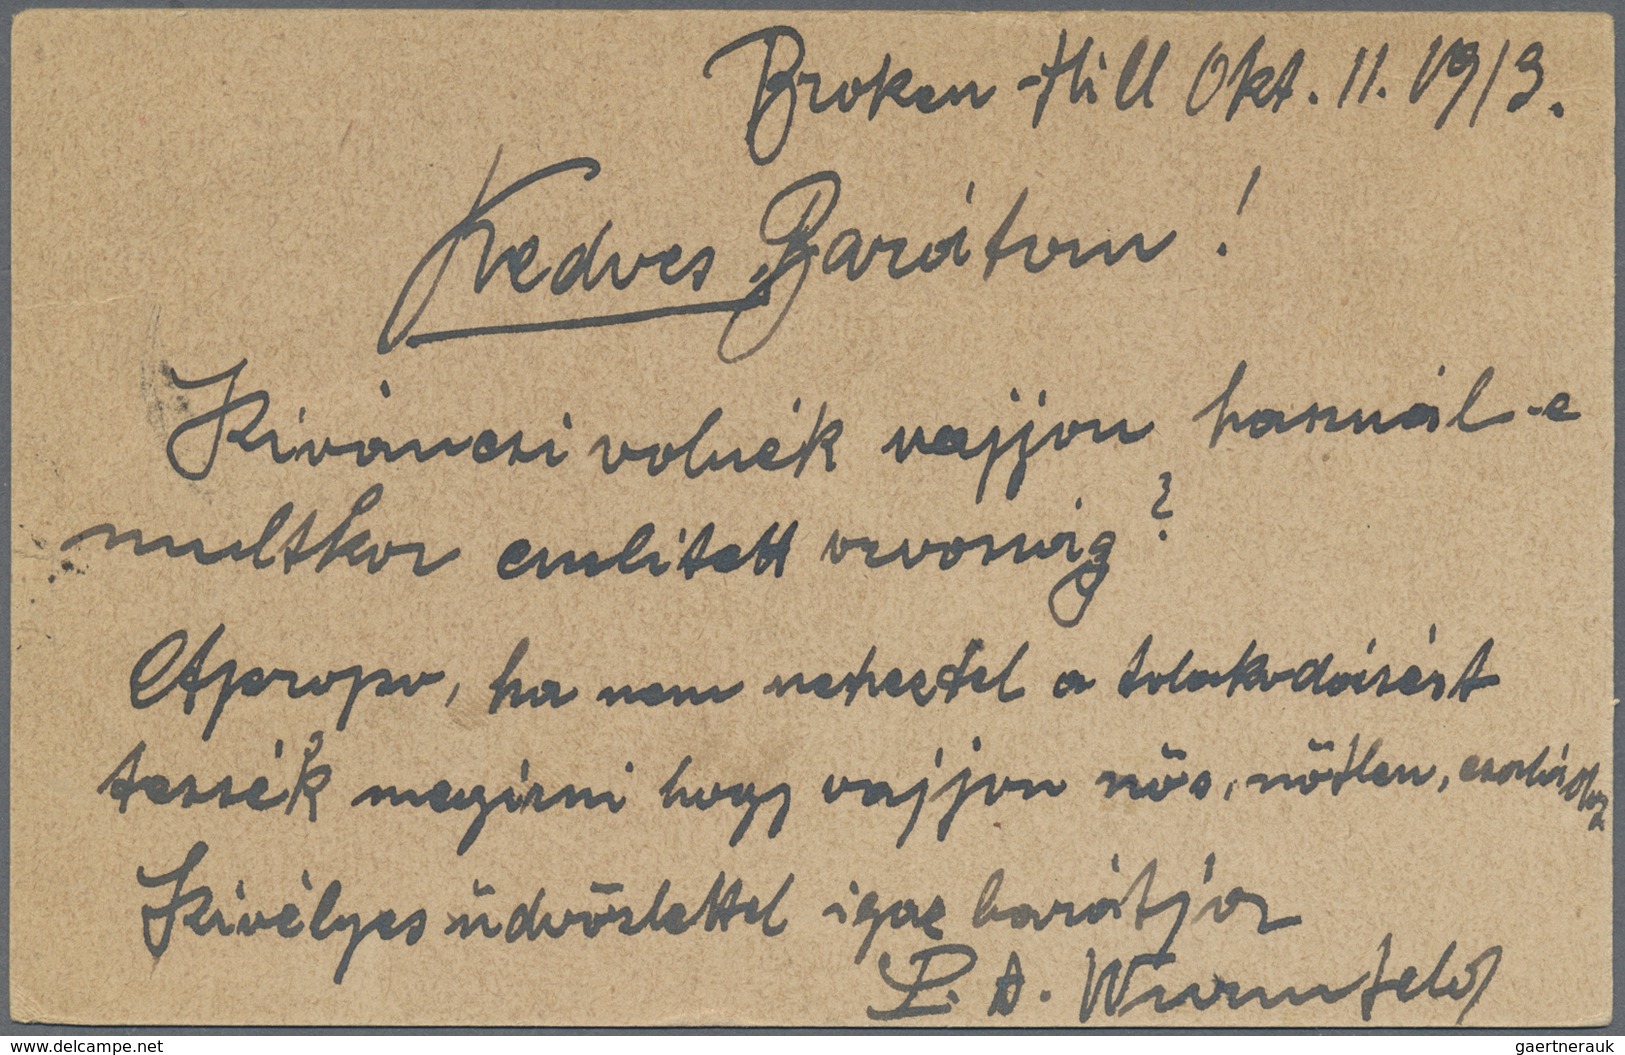 Broken-Hill Okt. 11. 1913.
Kedves Barátom!
Kiváncsi volnék vajjon használ-e
multkor emlitett orvosság?
Apropo, ha nem neheztel a tolakodásért
tessék megirni hogy vajjon nös, nötlen,
Kivélyes üdvözlettel igaz barátja
L. A. Wurmfeld
www.delcampe.net
gaertnerauk